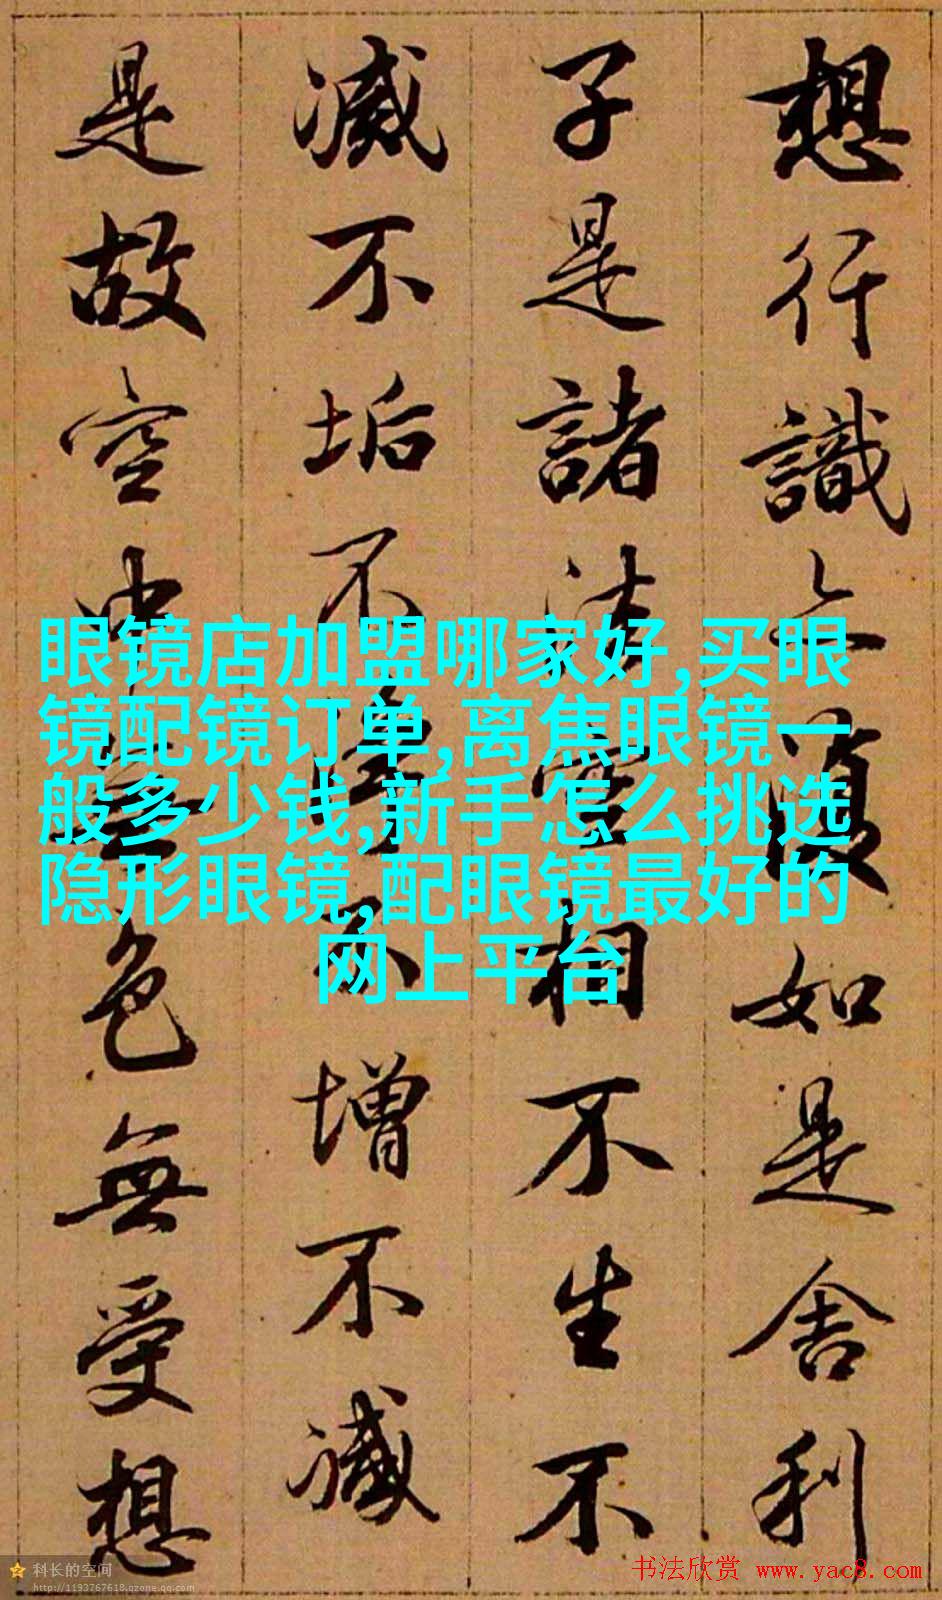 想行識亦復如是舍利
子是諸法空相不生不
滅不垢不淨不增不減
是故空中無色無受想
眼镜店加盟哪家好,买眼
镜配镜订单,离焦眼镜一
般多少钱,新手怎么挑选
隐形眼镜,配眼镜最好的
网上平台
科长的空间
http://1193767618.qzone.qq.com
书法欣赏 www.yac8.com